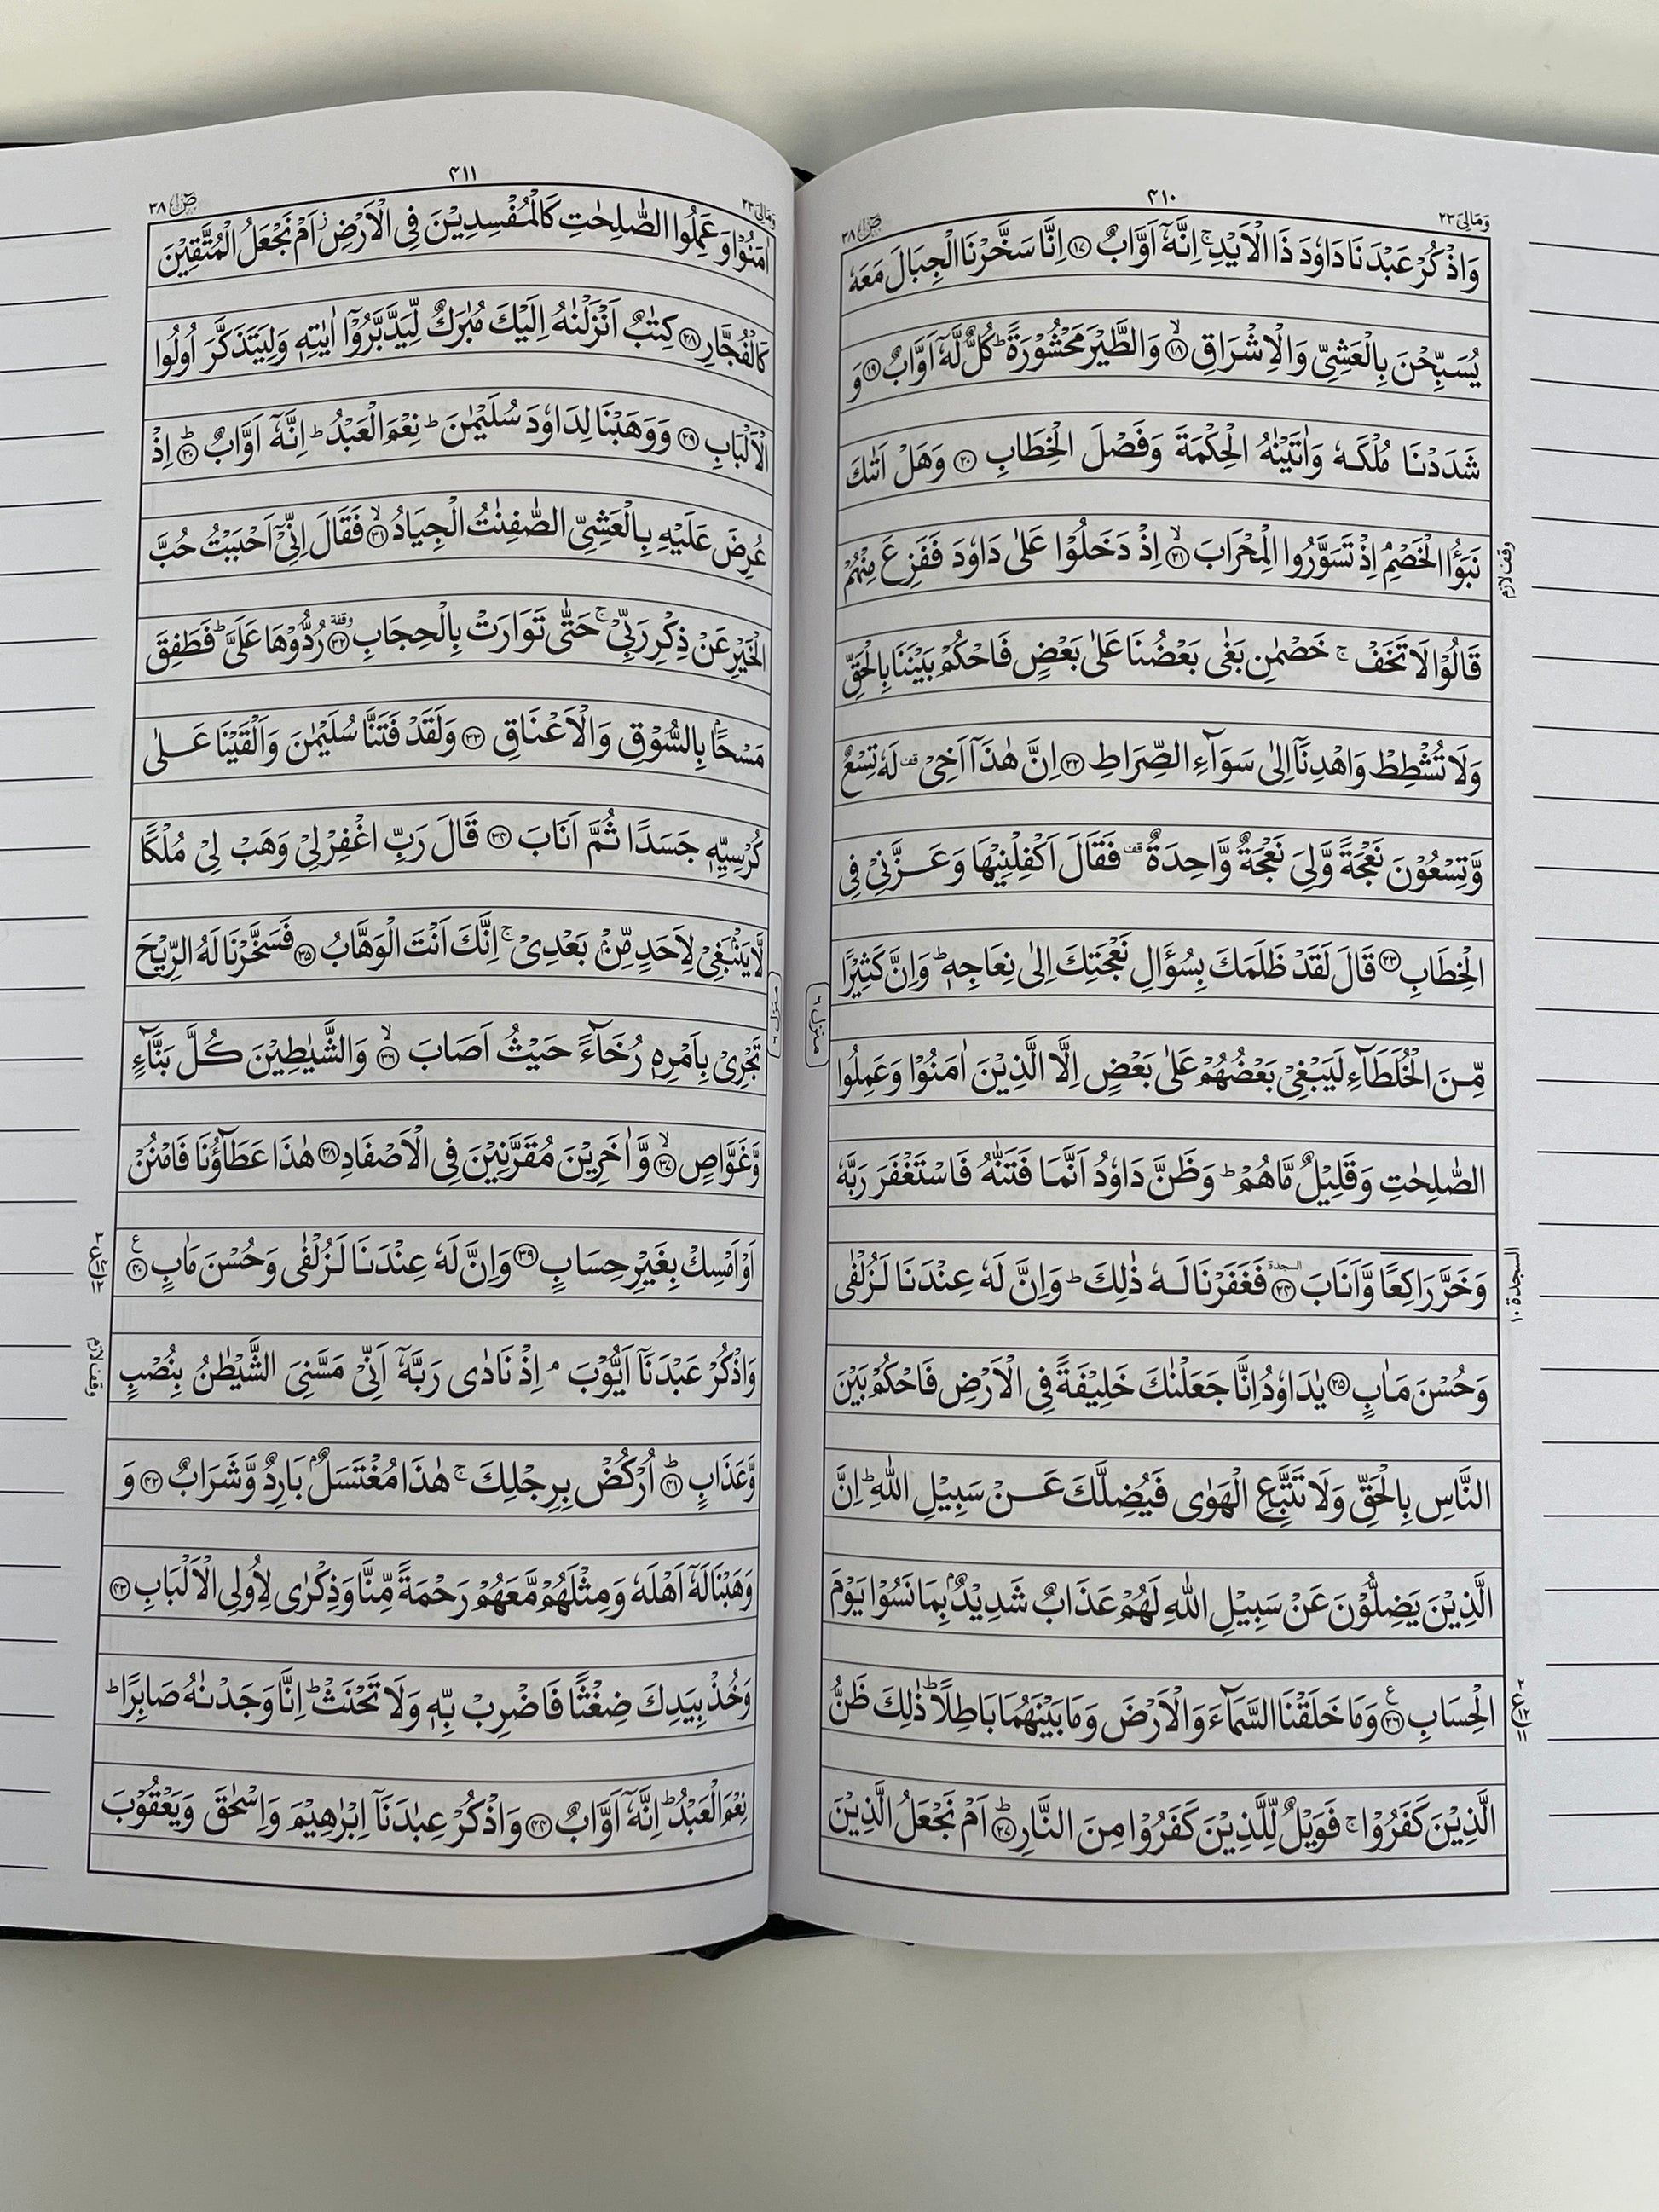 وَمَالِیَ ٢٣
٤١٠
صٓ ٣٨
وَاذْكُرْ عَبْدَنَا دَاوٗدَ ذَا الْاَيْدِ ۚ اِنَّهٗۤ اَوَّابٌ ⑰ اِنَّا سَخَّرْنَا الْجِبَالَ مَعَهٗ
يُسَبِّحْنَ بِالْعَشِيِّ وَالْاِشْرَاقِ ۙ⑱ وَالطَّيْرَ مَحْشُوْرَةً ؕ كُلٌّ لَّهٗۤ اَوَّابٌ ⑲ وَ
شَدَدْنَا مُلْكَهٗ وَاٰتَيْنٰهُ الْحِكْمَةَ وَفَصْلَ الْخِطَابِ ⑳ وَهَلْ اَتٰىكَ
نَبَؤُا الْخَصْمِ ۘ اِذْ تَسَوَّرُوا الْمِحْرَابَ ۙ㉑ اِذْ دَخَلُوْا عَلٰى دَاوٗدَ فَفَزِعَ مِنْهُمْ
وقف لازم
قَالُوْا لَا تَخَفْ ۚ خَصْمٰنِ بَغٰى بَعْضُنَا عَلٰى بَعْضٍ فَاحْكُمْ بَيْنَنَا بِالْحَقِّ
وَلَا تُشْطِطْ وَاهْدِنَاۤ اِلٰى سَوَآءِ الصِّرَاطِ ㉒ اِنَّ هٰذَاۤ اَخِىْ قف لَهٗ تِسْعٌ
وَّتِسْعُوْنَ نَعْجَةً وَّلِىَ نَعْجَةٌ وَّاحِدَةٌ قف فَقَالَ اَكْفِلْنِيْهَا وَعَزَّنِىْ فِى
الْخِطَابِ ㉓ قَالَ لَقَدْ ظَلَمَكَ بِسُؤَالِ نَعْجَتِكَ اِلٰى نِعَاجِهٖ ؕ وَاِنَّ كَثِيْرًا
مِّنَ الْخُلَطَآءِ لَيَبْغِىْ بَعْضُهُمْ عَلٰى بَعْضٍ اِلَّا الَّذِيْنَ اٰمَنُوْا وَعَمِلُوا
الصّٰلِحٰتِ وَقَلِيْلٌ مَّا هُمْ ؕ وَظَنَّ دَاوٗدُ اَنَّمَا فَتَنّٰهُ فَاسْتَغْفَرَ رَبَّهٗ
وَخَرَّ رَاكِعًا وَّاَنَابَ السجدة ㉔ فَغَفَرْنَا لَهٗ ذٰلِكَ ؕ وَاِنَّ لَهٗ عِنْدَنَا لَزُلْفٰى
السجدة ١٠
وَحُسْنَ مَاٰبٍ ㉕ يٰدَاوٗدُ اِنَّا جَعَلْنٰكَ خَلِيْفَةً فِى الْاَرْضِ فَاحْكُمْ بَيْنَ
النَّاسِ بِالْحَقِّ وَلَا تَتَّبِعِ الْهَوٰى فَيُضِلَّكَ عَنْ سَبِيْلِ اللّٰهِ ؕ اِنَّ
الَّذِيْنَ يَضِلُّوْنَ عَنْ سَبِيْلِ اللّٰهِ لَهُمْ عَذَابٌ شَدِيْدٌۢ بِمَا نَسُوْا يَوْمَ
الْحِسَابِ ع㉖ وَمَا خَلَقْنَا السَّمَآءَ وَالْاَرْضَ وَمَا بَيْنَهُمَا بَاطِلًا ؕ ذٰلِكَ ظَنُّ
٢ ع ١٢ ١١
الَّذِيْنَ كَفَرُوْا ۚ فَوَيْلٌ لِّلَّذِيْنَ كَفَرُوْا مِنَ النَّارِ ؕ㉗ اَمْ نَجْعَلُ الَّذِيْنَ
منزل ٦
وَمَالِیَ ٢٣
٤١١
صٓ ٣٨
اٰمَنُوْا وَعَمِلُوا الصّٰلِحٰتِ كَالْمُفْسِدِيْنَ فِى الْاَرْضِ ز اَمْ نَجْعَلُ الْمُتَّقِيْنَ
كَالْفُجَّارِ ㉘ كِتٰبٌ اَنْزَلْنٰهُ اِلَيْكَ مُبٰرَكٌ لِّيَدَّبَّرُوْۤا اٰيٰتِهٖ وَلِيَتَذَكَّرَ اُولُوا
الْاَلْبَابِ ㉙ وَوَهَبْنَا لِدَاوٗدَ سُلَيْمٰنَ ؕ نِعْمَ الْعَبْدُ ؕ اِنَّهٗۤ اَوَّابٌ ؕ㉚ اِذْ
عُرِضَ عَلَيْهِ بِالْعَشِيِّ الصّٰفِنٰتُ الْجِيَادُ ۙ㉛ فَقَالَ اِنِّىْۤ اَحْبَبْتُ حُبَّ
الْخَيْرِ عَنْ ذِكْرِ رَبِّىْ ۚ حَتّٰى تَوَارَتْ بِالْحِجَابِ وقفة ㉜ رُدُّوْهَا عَلَىَّ ؕ فَطَفِقَ
مَسْحًاۢ بِالسُّوْقِ وَالْاَعْنَاقِ ㉝ وَلَقَدْ فَتَنَّا سُلَيْمٰنَ وَاَلْقَيْنَا عَلٰى
كُرْسِيِّهٖ جَسَدًا ثُمَّ اَنَابَ ㉞ قَالَ رَبِّ اغْفِرْ لِىْ وَهَبْ لِىْ مُلْكًا
لَّا يَنْۢبَغِىْ لِاَحَدٍ مِّنْۢ بَعْدِىْ ۚ اِنَّكَ اَنْتَ الْوَهَّابُ ㉟ فَسَخَّرْنَا لَهُ الرِّيْحَ
تَجْرِىْ بِاَمْرِهٖ رُخَآءً حَيْثُ اَصَابَ ۙ㊱ وَالشَّيٰطِيْنَ كُلَّ بَنَّآءٍ
وَّغَوَّاصٍ ۙ㊲ وَّاٰخَرِيْنَ مُقَرَّنِيْنَ فِى الْاَصْفَادِ ㊳ هٰذَا عَطَآؤُنَا فَامْنُنْ
اَوْ اَمْسِكْ بِغَيْرِ حِسَابٍ ㊴ وَاِنَّ لَهٗ عِنْدَنَا لَزُلْفٰى وَحُسْنَ مَاٰبٍ ع㊵
٣ ع ١٤ ١٢
وَاذْكُرْ عَبْدَنَاۤ اَيُّوْبَ ۘ اِذْ نَادٰى رَبَّهٗۤ اَنِّىْ مَسَّنِىَ الشَّيْطٰنُ بِنُصْبٍ
وقف لازم
وَّعَذَابٍ ؕ㊶ اُرْكُضْ بِرِجْلِكَ ۚ هٰذَا مُغْتَسَلٌۢ بَارِدٌ وَّشَرَابٌ ㊷ وَ
وَهَبْنَا لَهٗۤ اَهْلَهٗ وَمِثْلَهُمْ مَّعَهُمْ رَحْمَةً مِّنَّا وَذِكْرٰى لِاُولِى الْاَلْبَابِ ㊸
وَخُذْ بِيَدِكَ ضِغْثًا فَاضْرِبْ بِّهٖ وَلَا تَحْنَثْ ؕ اِنَّا وَجَدْنٰهُ صَابِرًا ؕ
نِعْمَ الْعَبْدُ ؕ اِنَّهٗۤ اَوَّابٌ ㊹ وَاذْكُرْ عِبٰدَنَاۤ اِبْرٰهِيْمَ وَاِسْحٰقَ وَيَعْقُوْبَ
منزل ٦